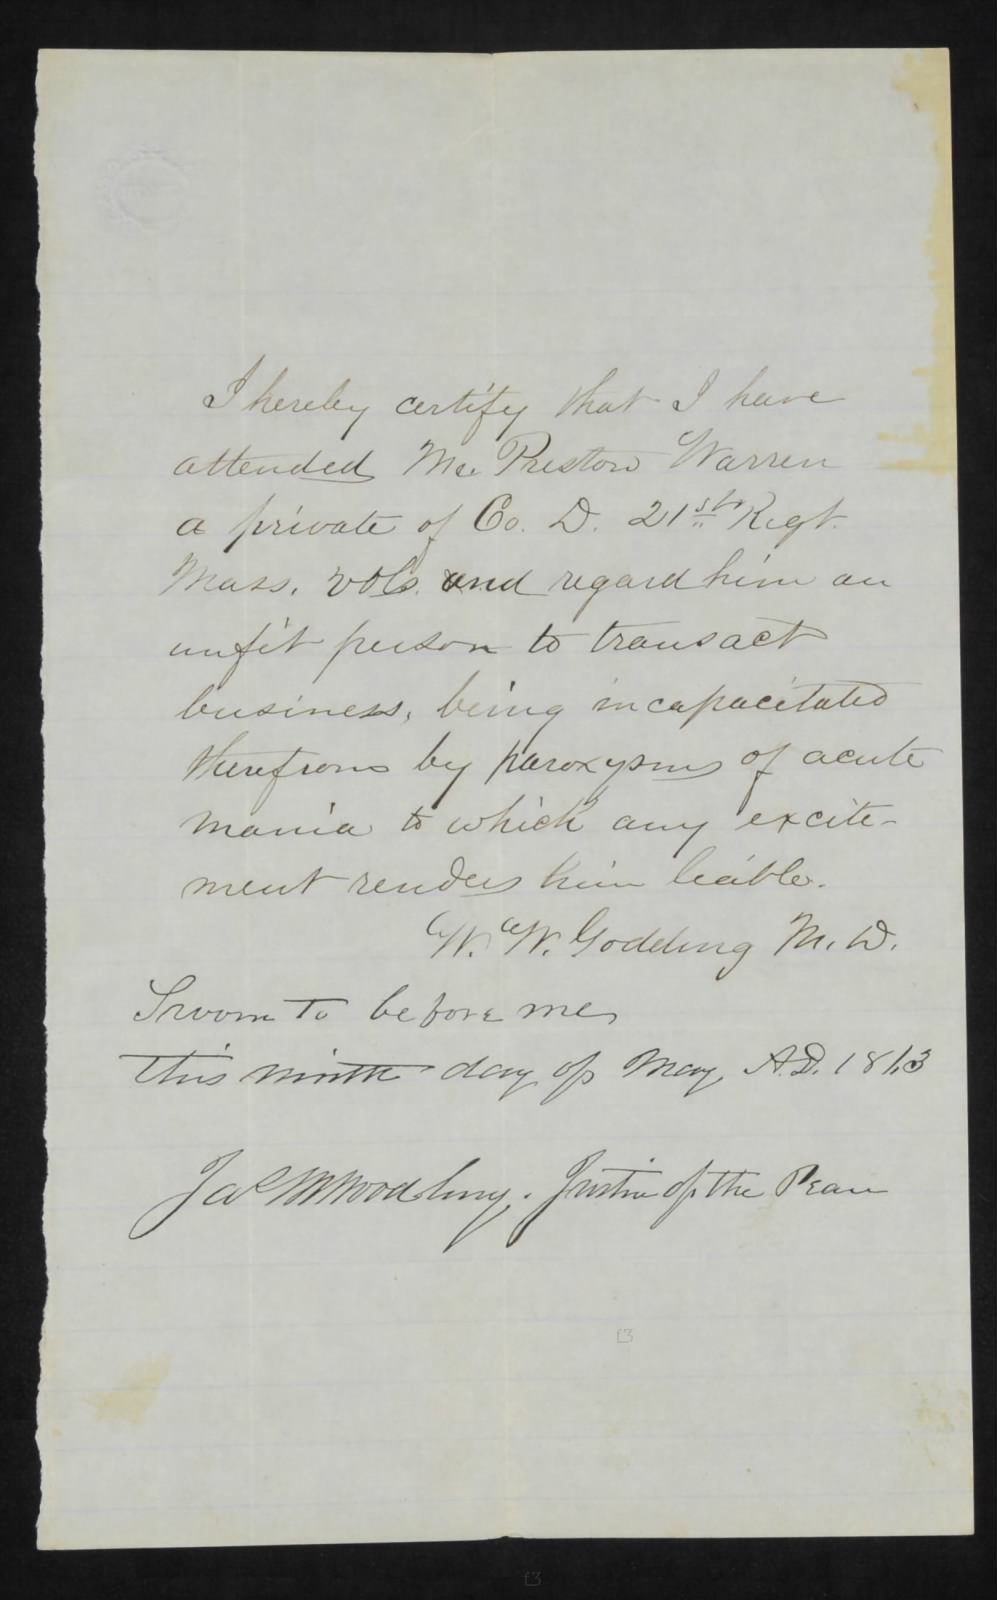 I hereby certify that I have
attended Mr. Preston Warren
a private of Co. D. 21st Regt.
Mass. vols. and regard him an
unfit person to transact
business, being incapacitated
therefrom by paroxysms of acute
mania to which any excite-
ment renders him liable.
W. W. Godding M. D.
Sworn to before me
this ninth day of May A.D. 1863
Justice of the Peace